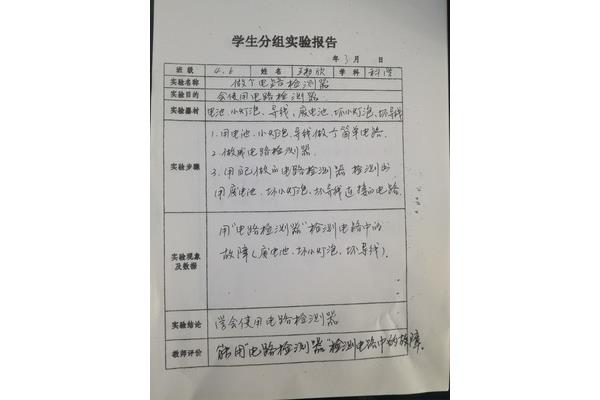 学生分组实验报告
年 3 月 日
班级 4.6 姓名 王 欣 学科 科学
实验名称 做个电路检测器
实验目的 会使用电路检测器
实验器材 电池、小灯泡、导线、废电池、坏小灯泡、坏导线
1.用电池、小灯泡、导线做个简单电路.
2.做成电路检测器.
实验步骤 3.用自己做的电路检测器检测出
用废电池、坏小灯泡、坏导线连接的电路.
用"电路检测器"检测电路中的
故障(废电池、坏小灯泡、坏导线).
实验现象
及数据
实验结论 学会使用电路检测器
教师评价 能用"电路检测器"检测电路中的故障.